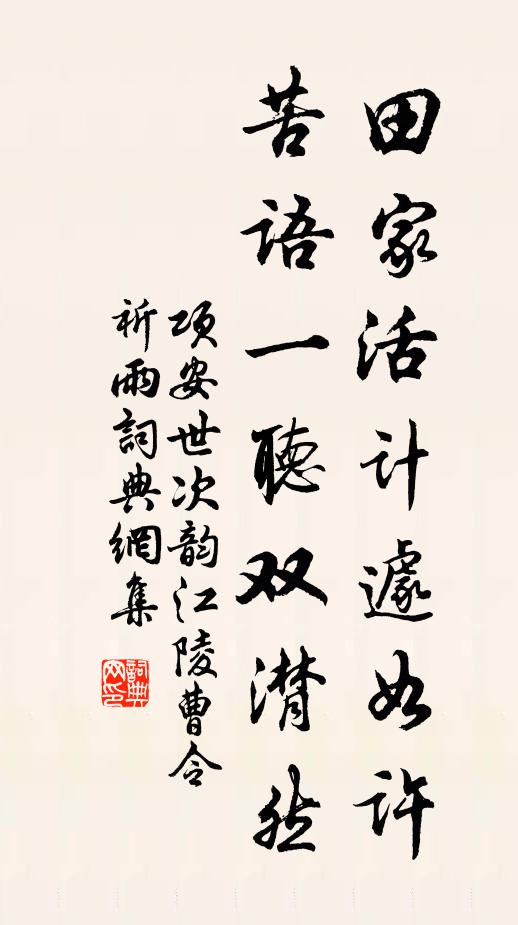 田家活计遽如许
苦语一聽双潸然
项安世次韵江陵曹令
祈雨詞典網集
詞典网印